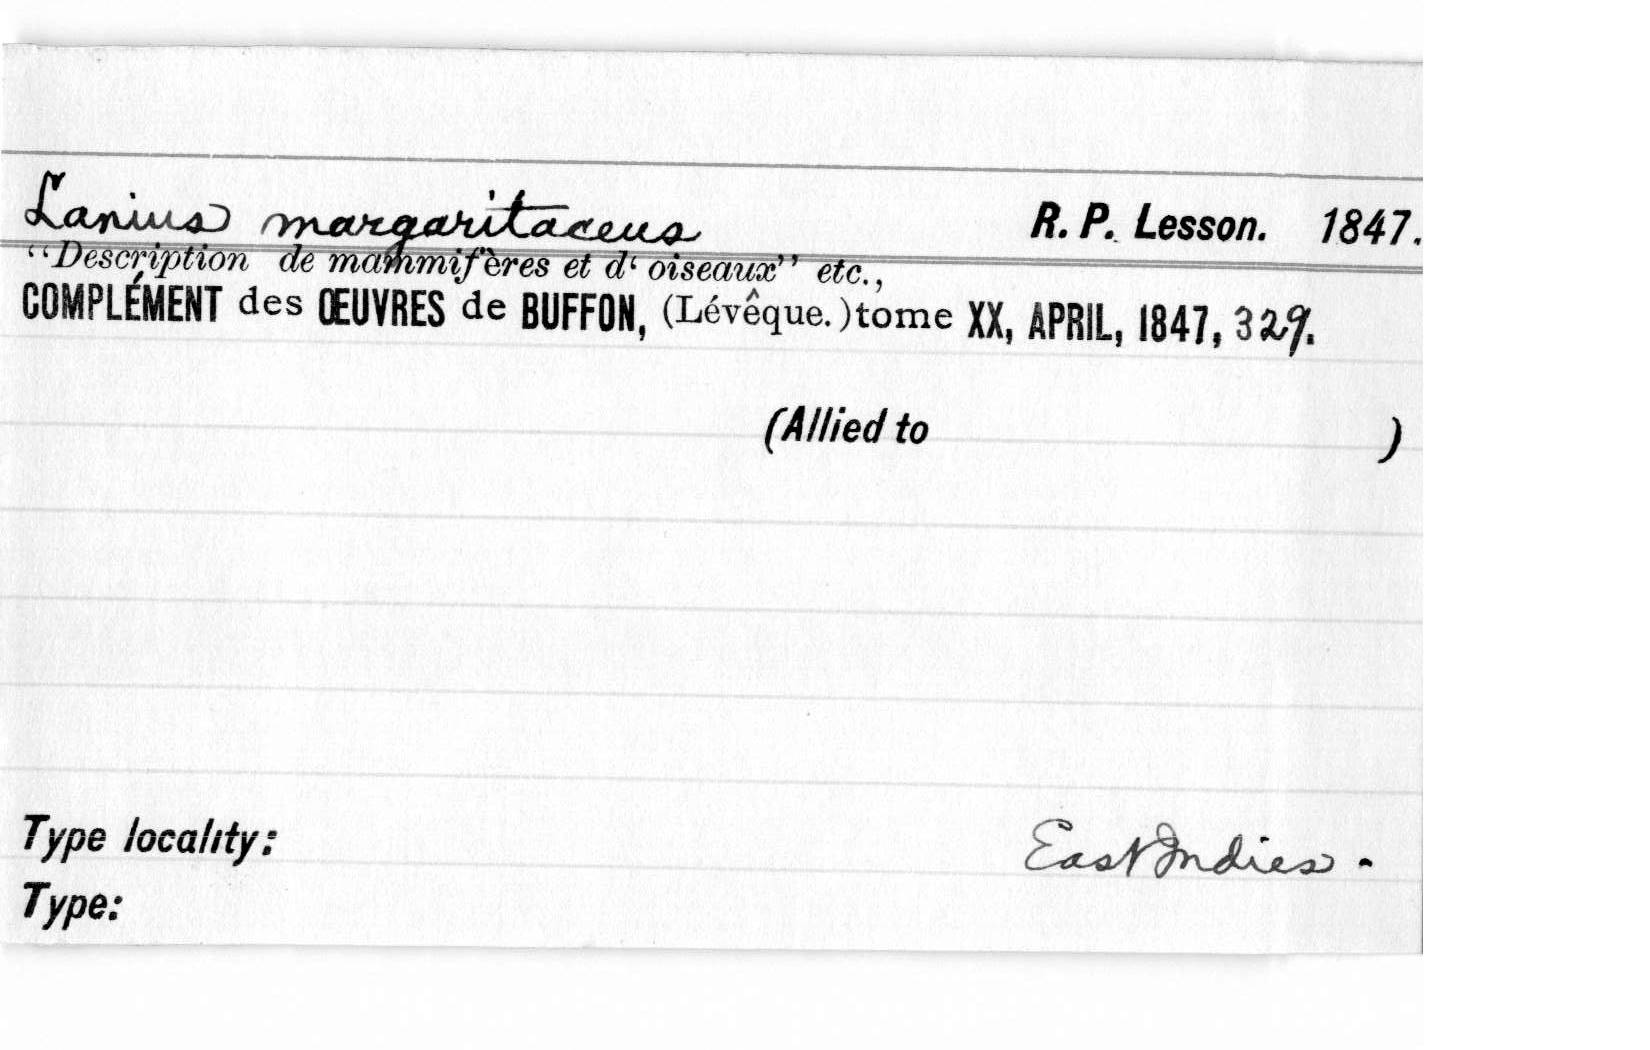 Lanius margaritaceus R. P. Lesson. 1847.
“Description de mammifères et d‘ oiseaux” etc.,
COMPLÉMENT des ŒUVRES de BUFFON, (Lévêque.) tome XX, APRIL, 1847, 329.
(Allied to )
Type locality: East Indies -
Type: